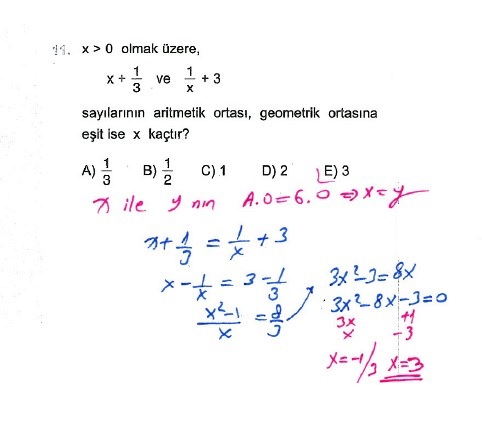 11. x > 0 olmak üzere,
x + 1/3 ve 1/x + 3
sayılarının aritmetik ortası, geometrik ortasına
eşit ise x kaçtır?
A) 1/3 B) 1/2 C) 1 D) 2 E) 3
x ile y nın A.O=G.O ⇒ x=y
x + 1/3 = 1/x + 3
x - 1/x = 3 - 1/3
x²-1/x = 8/3
3x²-3=8x
3x²-8x-3=0
3x +1
x -3
x=-1/3 x=3